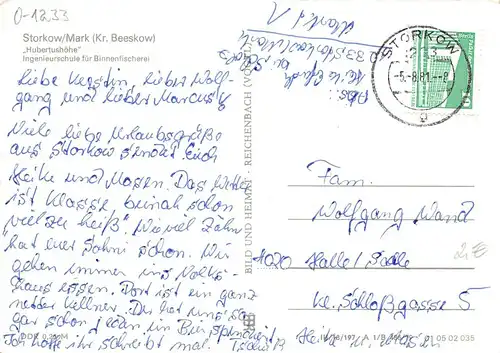 0-1233
Storkow/Mark (Kr. Beeskow)
„Hubertushöhe"
Ingenieurschule für Binnenfischerei
Liebe Kerstin, lieber Wolf-
gang und lieber Marcus!
Viele liebe Urlaubsgrüße
aus Storkow sendet Euch
Heike und Mosen. Das Wetter
ist Klasse, beinah schon
"viel zu heiß". Wieviel Zähn
hat euer Sohni schon. Wir
gehen immer ins Volks-
haus essen. Dort ist ein ganz
netter Kellner. Der hat uns so
gar schon jeden ein Bier
Ich hoffe ihr schreibt mal.
DDR 0,20 M
BILD UND HEIMAT · REICHENBACH (VOGTL)
Abs.
Storkow/Mark
STORKOW
1233
-5.-8.81.-8
a
10
Fam.
Wolfgang Wand
4020 Halle/Saale
Kl. Schloßgasse 5
A 1/B
01 05 02 035